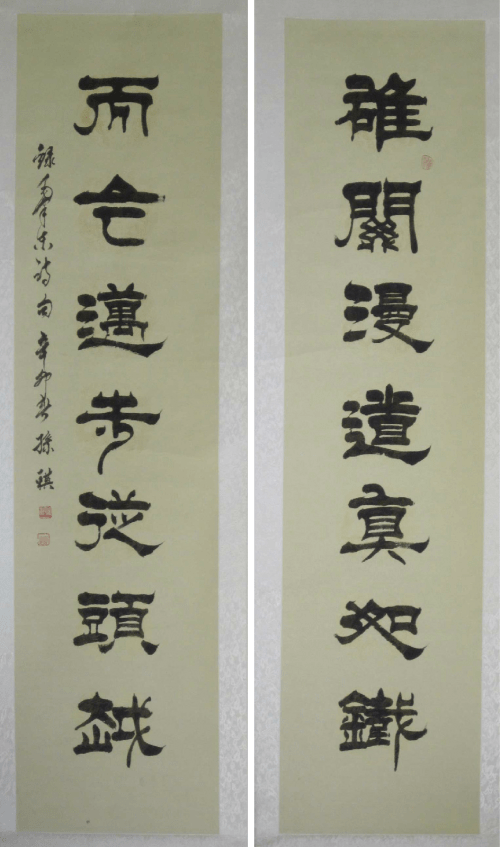 雄關漫道真如鐵
而今邁步從頭越
錄毛澤东詩句 辛卯春 孫祺